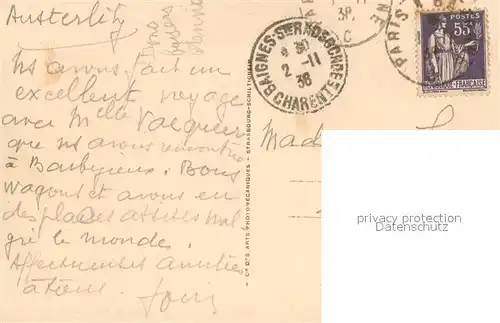 Austerlitz
ns avons fait un
excellent voyage
avec Melle
que ns avons rencontrée
à Barbezieux. Bons
wagons et avons eu
des places assises mal
gré le monde.
Affectueuses amitiés
à tous.
BAIGNES-STE RADEGONDE
2 -11
38
CHARENTE
38
PARIS
POSTES
55c
Mad
privacy protection
Datenschutz
CIE DES ARTS PHOTOMÉCANIQUES - STRASBOURG-SCHILTIGHEIM